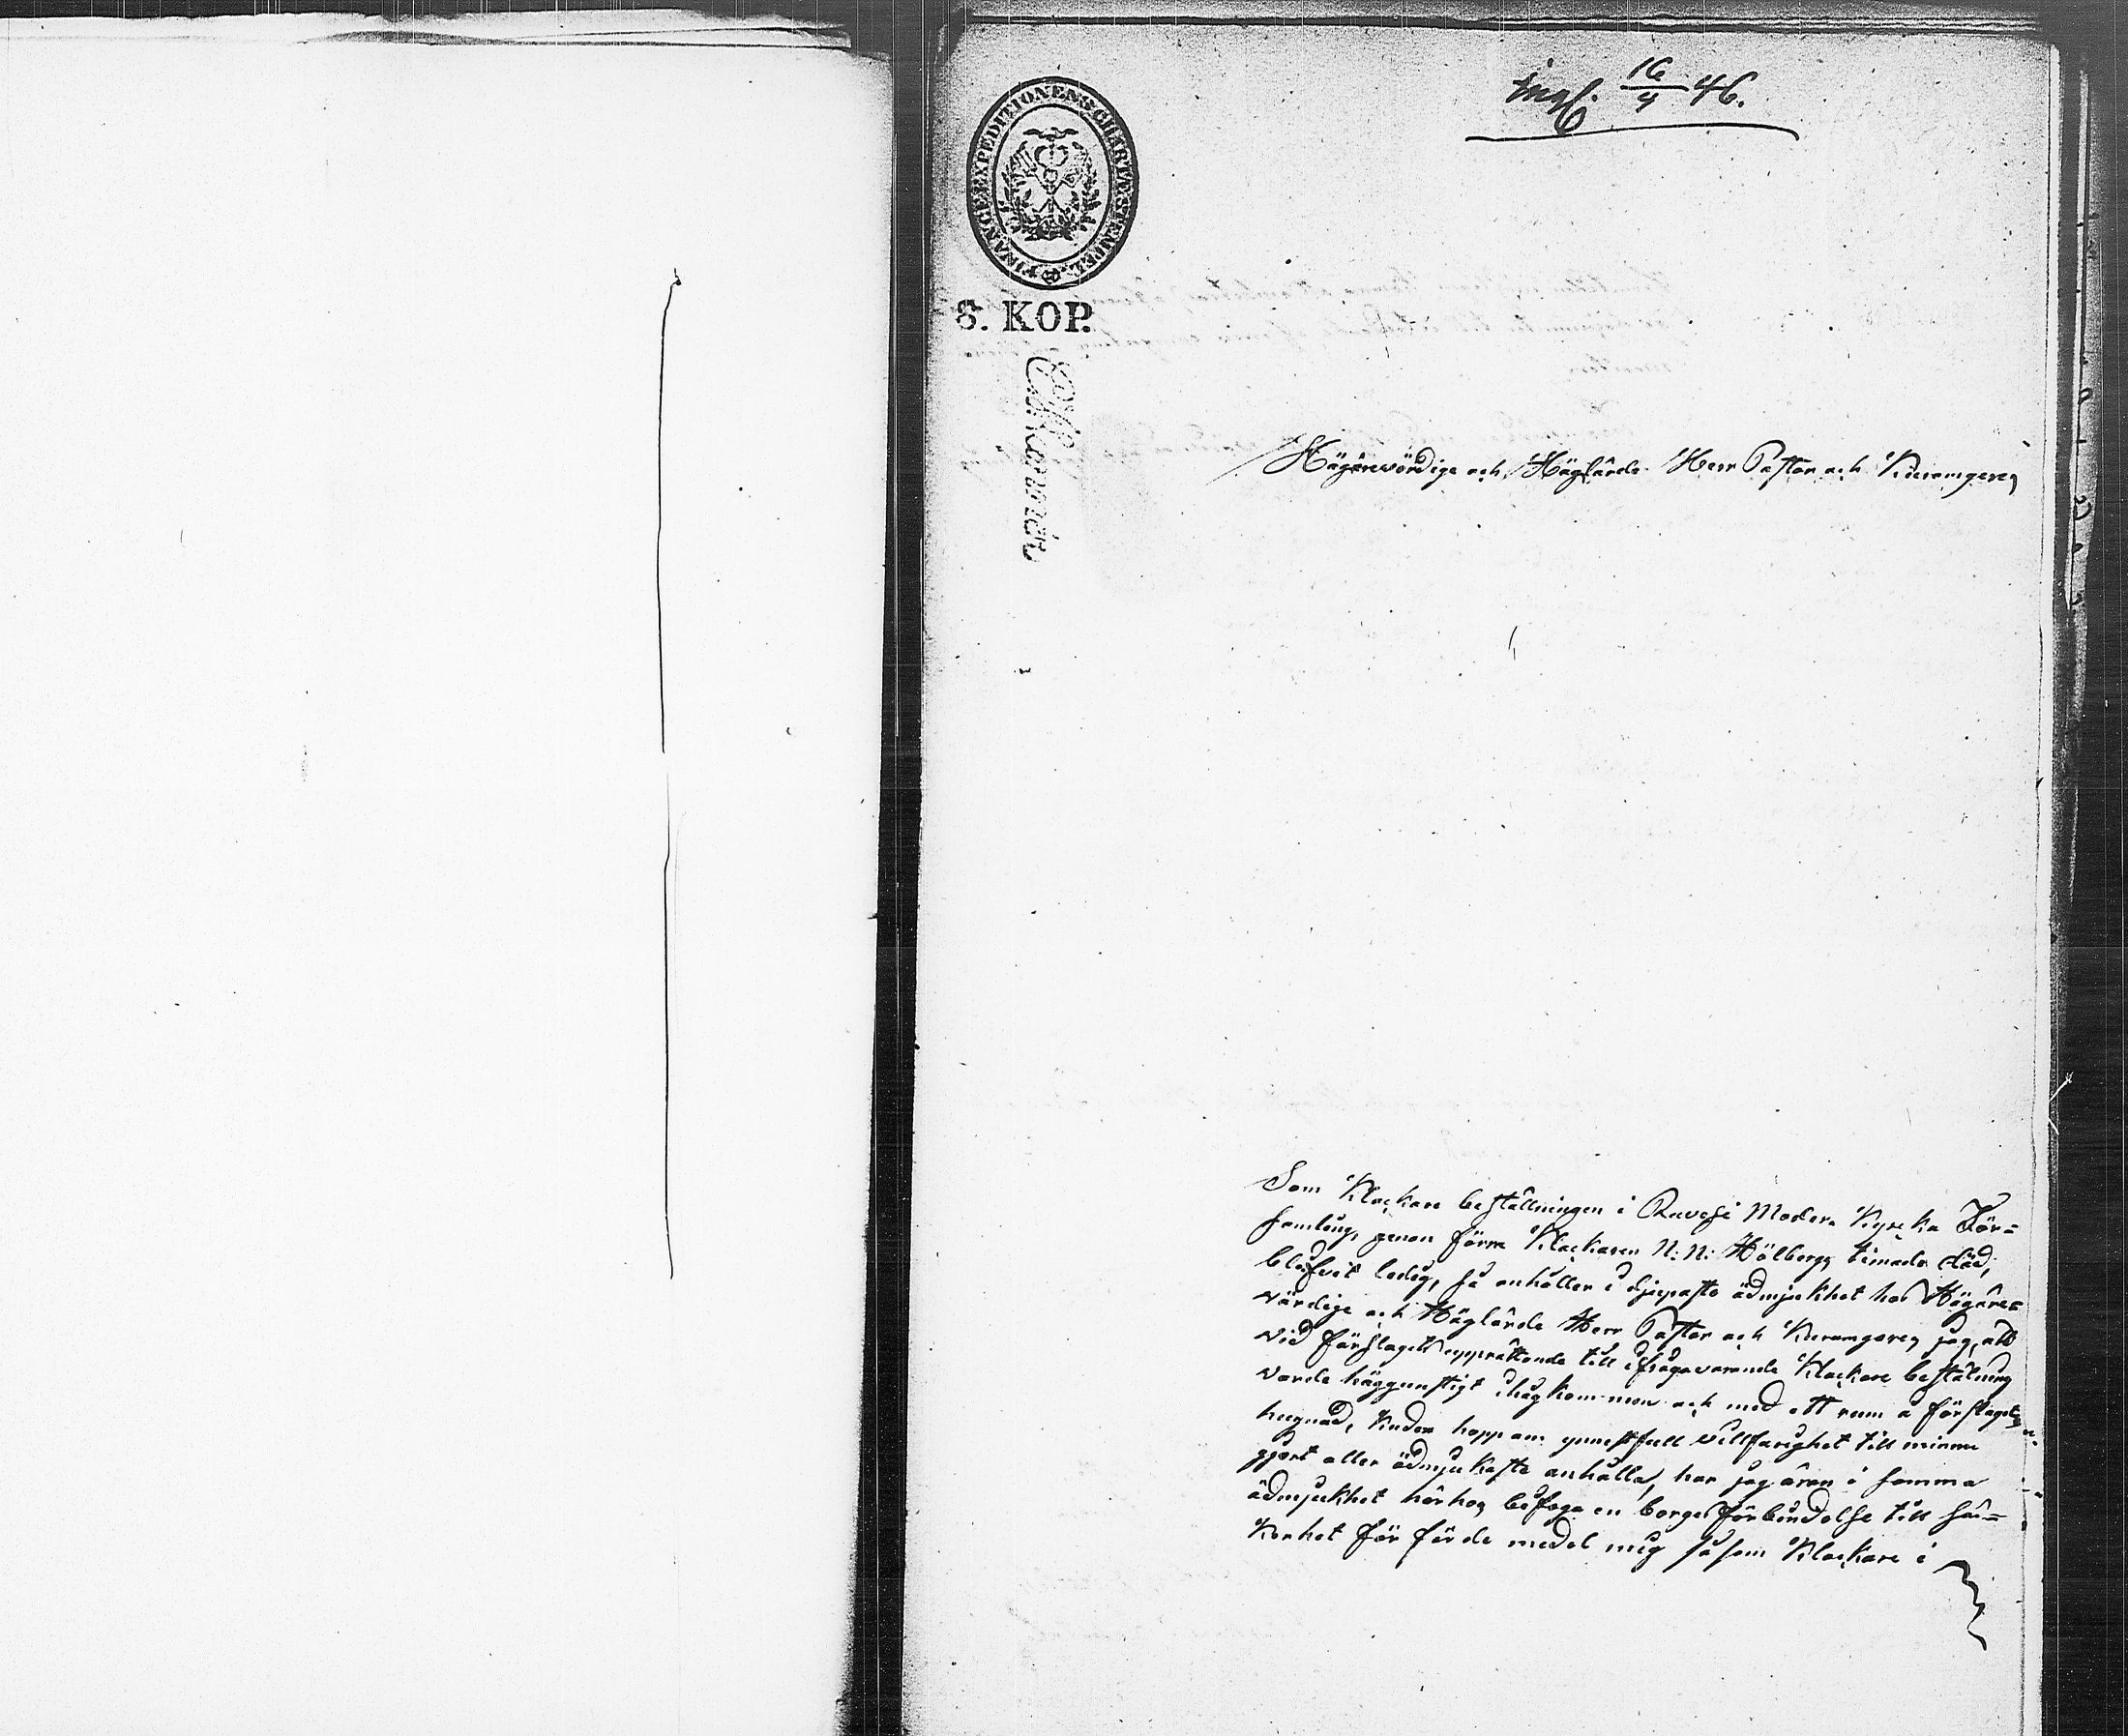 ingf. 16/4 46.
FINANCE EXPEDITIONENS CHARTÆ STEMPEL
8. KOP.
Högärevördige och Höglärde Herr Pastor och
Som Klockare beställningen i Ruovesi Moder Kyrcka För=
samling, genom förra Klockaren N: N: Hölbergs timade död,
blifvit ledig, så anhåller i djupaste ödmjukhet hos Högäre=
vördige och Höglärde Herr Pastor och jag, att
vid förslagets upprättande till ifrågavarande Klockare beställning
varde höggunstigt ihågkommen och med ett rum å förslaget
hugnad. Under hopp om gunstfull villfarighet till minne
gjort aller ödmjukaste anhålla, har jag äran i samma
ödmjukhet härhos bifoga en borgesförbindelse till sä=
kerhet för de medel mig såsom Klockare i